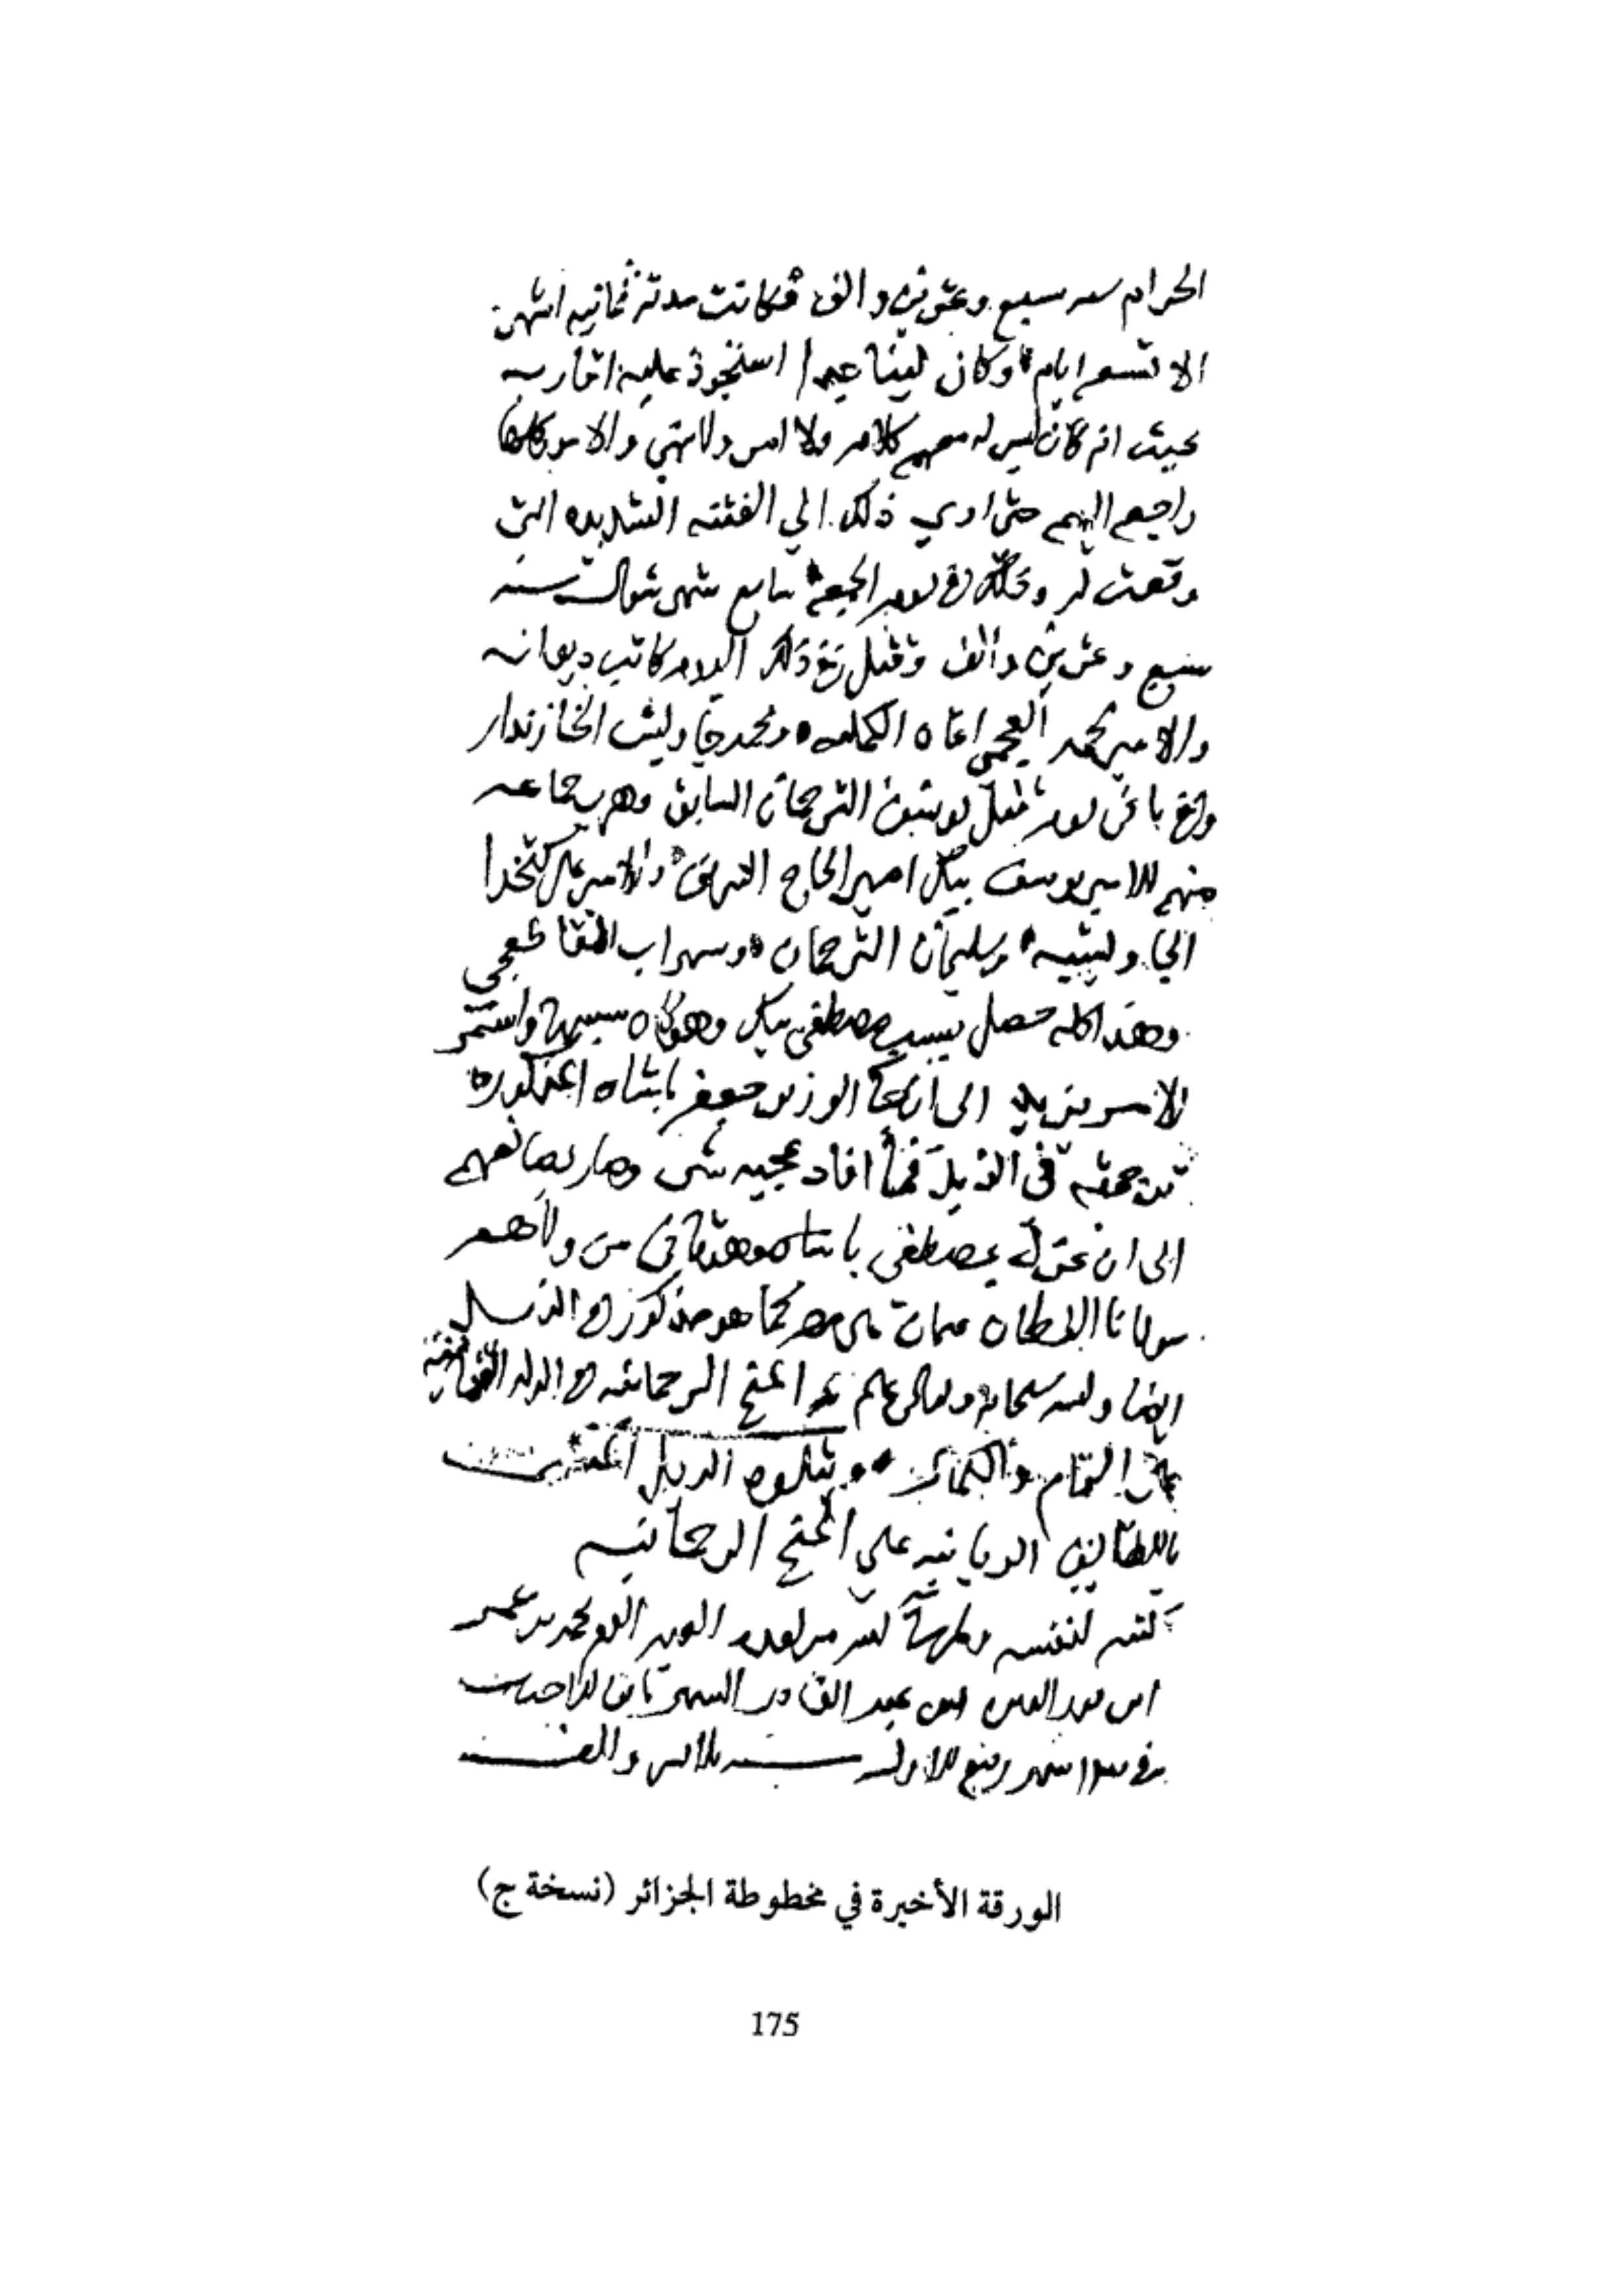 الحرام سنة سبع وعشرين والف فكانت مدته ثمانيه اشهر
الا تسعه ايام وكان لينا استحوذ عليه اقاربه
بحيث انه كان ليس له معهم كلام ولا امر ولا نهي والامور كلها
راجعه اليهم حتى ادي ذلك الي الفتنه الشديده التي
وقعت له يوم الجمعه سابع شهر شوال سنه
سبع وعشرين والف وقتل في ذلك اليوم كاتب ديوانه
والامير محمد العجمي اغاه ومحمد جاويش الخازندار
وفي باقي يوم قتل يوسف الترجمان السابق وهرب جماعه
منهم الامير يوسف بيك امير الحاج الشريف والامير علي كتخدا
الجاويشيه وسليمان الترجمان وسهراب
وهذا كله حصل بسبب مصطفى بيك وهو كان سببها واستمر
الامر الى ان جا الوزير جعفر باشاه المذكوره
ترجمته في الذيل فما افاد مجيه شى وصار يصانعهم
الى ان عزل بمصطفى باشاه من ولاهم
مولانا السلطان عثمان مصر كما هو مذكور في الذيل
ايضا والله سبحانه وتعالى اعلم تم المنح الرحمانيه في الدوله العثمانيه
على التمام والكمال ويتلوه الذيل
باللطايف الربانيه علي المنح الرحمانيه
كتبه لنفسه محمد بن عمر
ابن ابن عبد القادر
في شهر ربيع الاول سنه ثلاثين والف
الورقة الأخيرة في مخطوطة الجزائر (نسخة ج)
175